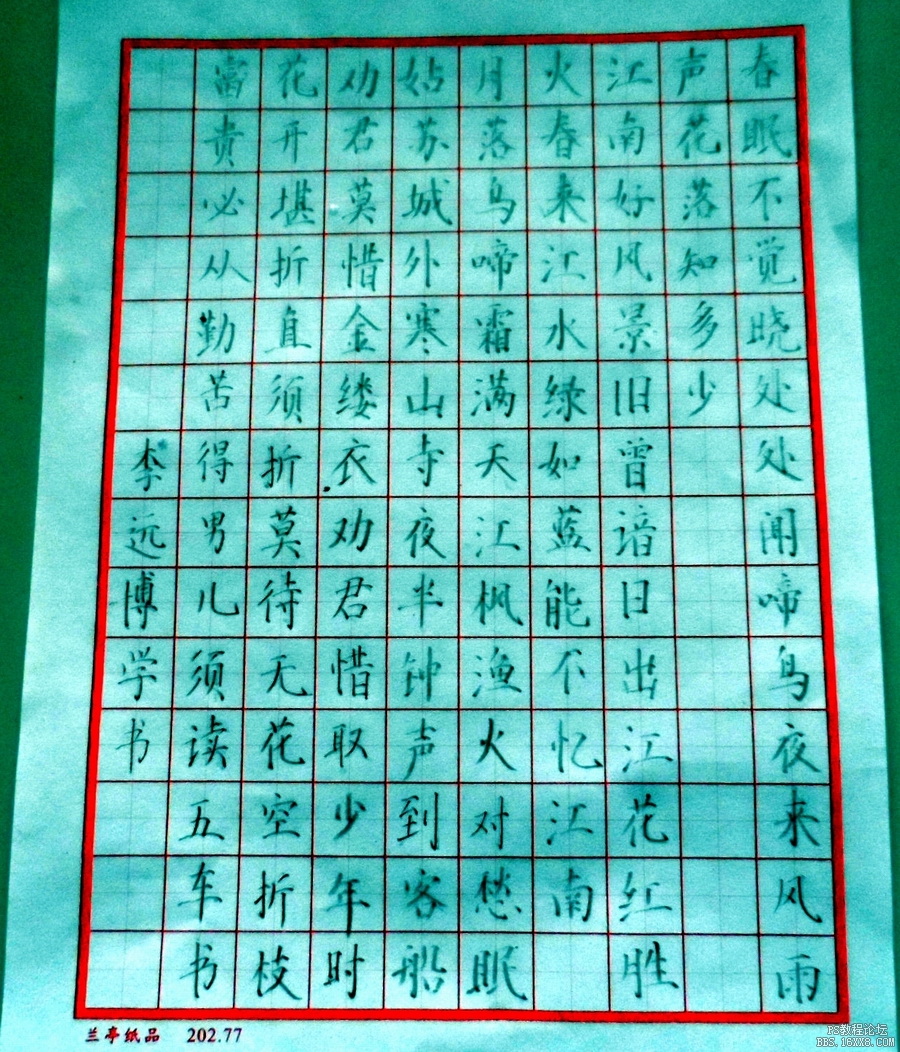 春眠不觉晓处处闻啼鸟夜来风雨
声花落知多少
江南好风景旧曾谙日出江花红胜
火春来江水绿如蓝能不忆江南
月落乌啼霜满天江枫渔火对愁眠
姑苏城外寒山寺夜半钟声到客船
劝君莫惜金缕衣劝君惜取少年时
花开堪折直须折莫待无花空折枝
富贵必从勤苦得男儿须读五车书
李远博学书
兰亭纸品 202.77
PS教程论坛
BBS.16XX8.COM